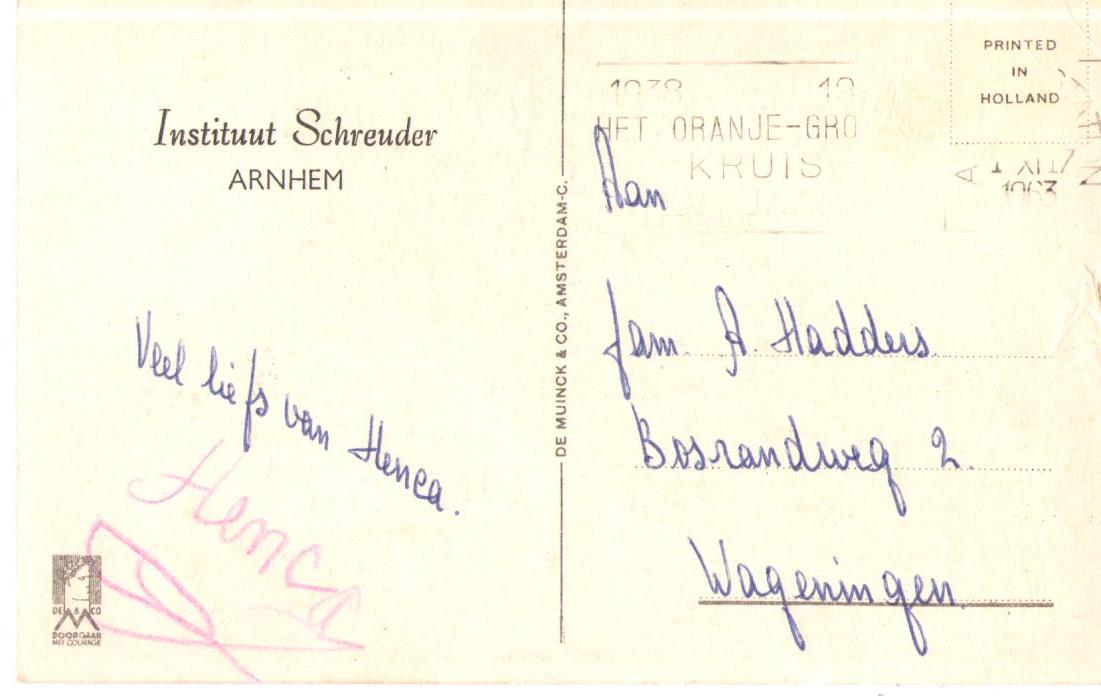 Instituut Schreuder
ARNHEM
Veel liefs van Henca.
Henca
DE M & CO
DOORGAAN
MET COURAGE
DE MUINCK & CO., AMSTERDAM-C.
1938 19
HET ORANJE-GRO
KRUIS
JAAR
PRINTED
IN
HOLLAND
XII
1963
Aan
fam. A. Hadders
Bosrandweg 2.
Wageningen.